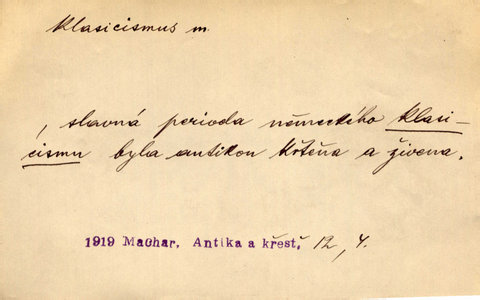 Klasicismus m.
, slavná perioda německého klasi-
cismu byla antikou křtěna a živena.
1919 Machar, Antika a křesť, 12, 4.